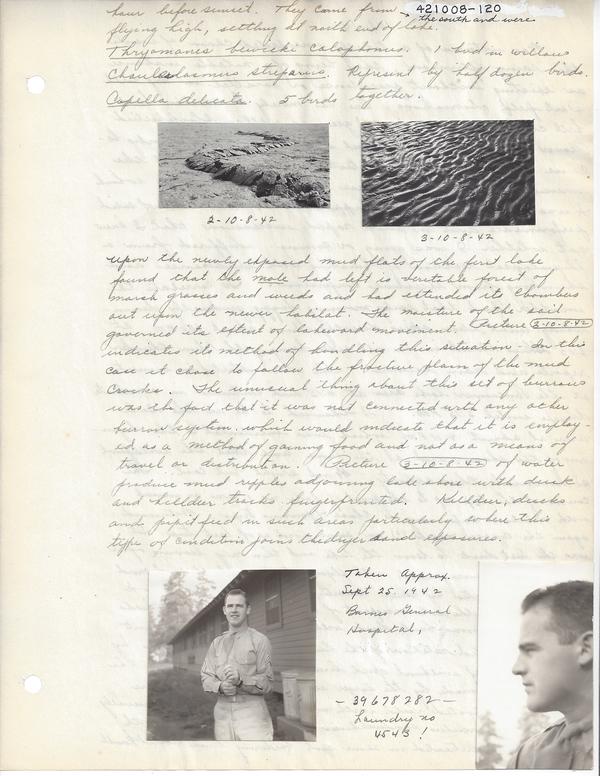 421008-120
hour before sunset. They came from the south and were
flying high, settling at north end of lake.
Thryomanes bewicki calophonus. 1 bird in willows
Chaulelasmus streperus. Represent by half dozen birds.
Capella delicata. 5 birds together.
2-10-8-42
3-10-8-42
upon the newly exposed mud flats of the first lake
found that the mole had left is veritable forest of
marsh grasses and weeds and had extended its
out upon the newer habitat. The moisture of the soil
governed its extent of lakeward movement. Picture 3-10-8-42
indicates its method of handling this situation. In this
case it chose to follow the fracture plain of the mud
cracks. The unusual thing about this set of burrows
was the fact that it was not connected with any other
burrow system, which would indicate that it is employ-
ed as a method of gaining food and not as a means of
travel or distribution. Picture 3-10-8-42 of water
produce mud ripples adjoining lake shore with duck
and killdeer tracks fingerprinted. Killdeer, ducks
and pipit feed in such areas particularly where this
type of condition joins the dryer sand exposures.
Taken Approx.
Sept 25 1942
Barnes General
Hospital,
- 39678282 -
Laundry no
4543!